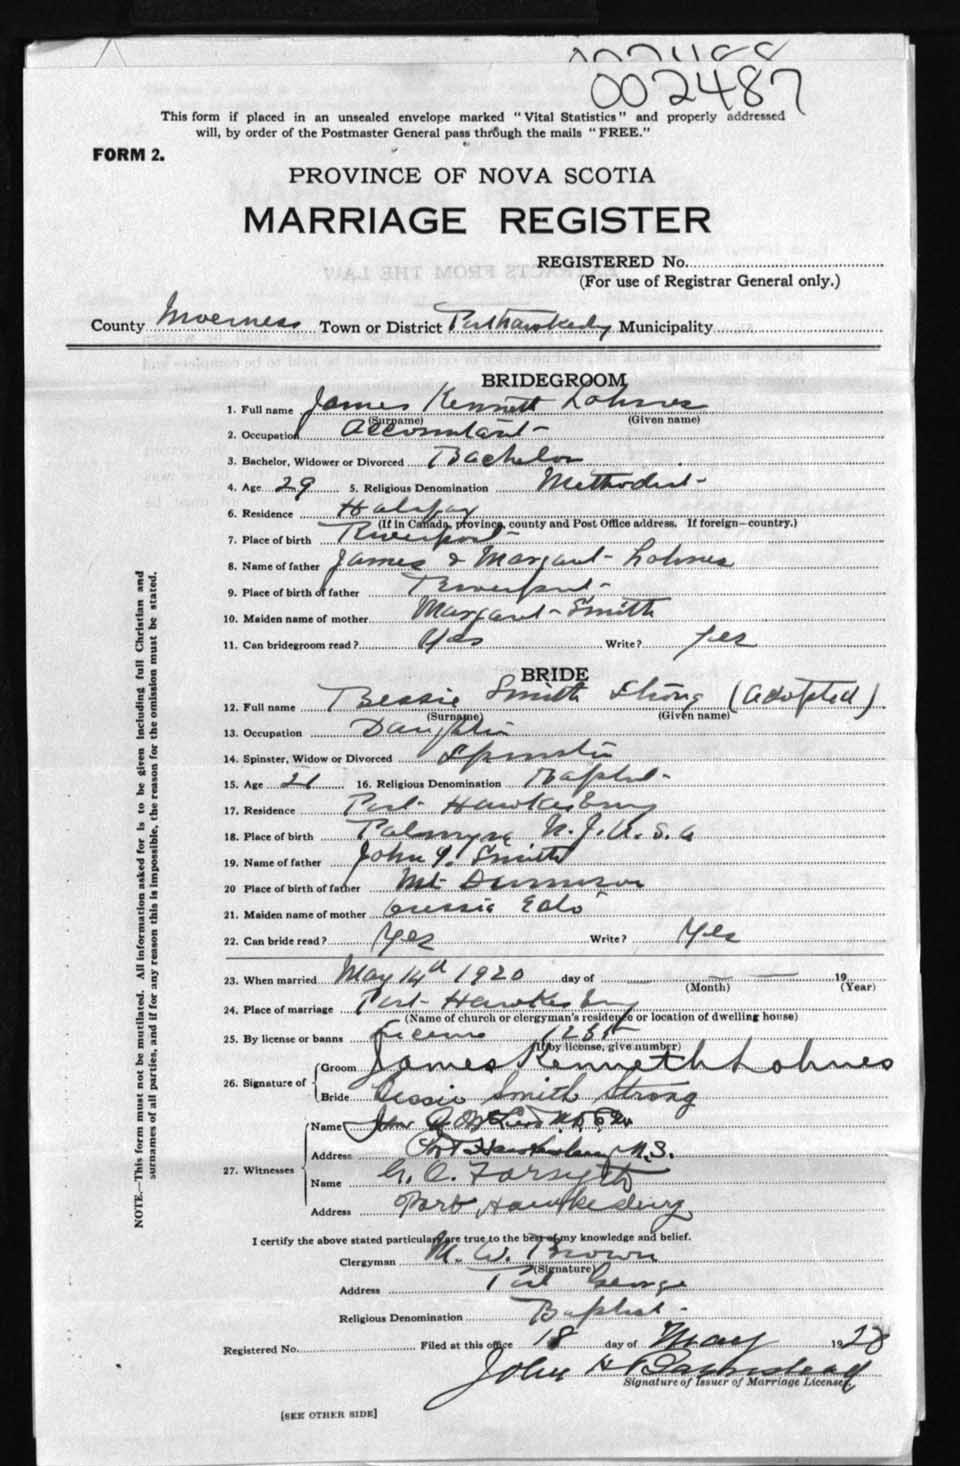 002488
002487
This form if placed in an unsealed envelope marked "Vital Statistics" and properly addressed
will, by order of the Postmaster General pass through the mails "FREE."
FORM 2.
PROVINCE OF NOVA SCOTIA
MARRIAGE REGISTER
REGISTERED No.
(For use of Registrar General only.)
County Inverness Town or District Port Hawkesbury Municipality
BRIDEGROOM
1. Full name James Kenneth Lohnes
(Surname) (Given name)
2. Occupation Accountant
3. Bachelor, Widower or Divorced Bachelor
4. Age 29 5. Religious Denomination Methodist
6. Residence Halifax
(If in Canada, province, county and Post Office address. If foreign—country.)
7. Place of birth Riverport
8. Name of father James & Margaret Lohnes
9. Place of birth of father Riverport
10. Maiden name of mother Margaret Smith
11. Can bridegroom read? Yes Write? Yes
BRIDE
12. Full name Bessie Smith Strong (adopted)
(Surname) (Given name)
13. Occupation Daughter
14. Spinster, Widow or Divorced Spinster
15. Age 21 16. Religious Denomination Baptist
17. Residence Port Hawkesbury
18. Place of birth Palmyra N.J. U.S.A
19. Name of father John Y. Smith
20 Place of birth of father Mt
21. Maiden name of mother
22. Can bride read? Yes Write? Yes
23. When married May 14th 1920 day of 19
(Month) (Year)
24. Place of marriage Port Hawkesbury
(Name of church or clergyman's residence or location of dwelling house)
25. By license or banns License
(If by license, give number)
26. Signature of Groom James Kenneth Lohnes
Bride Bessie Smith Strong
27. Witnesses Name
Address Port Hawkesbury N.S.
Name G. C. Forsyth
Address Port Hawkesbury
I certify the above stated particulars are true to the best of my knowledge and belief.
Clergyman M. W. Brown
(Signature)
Address Port George
Religious Denomination Baptist
Registered No. Filed at this office 18 day of May 1920
John H Bamstead
Signature of Issuer of Marriage Licenses
[SEE OTHER SIDE]
NOTE.—This form must not be mutilated. All information asked for is to be given including full Christian and
surnames of all parties, and if for any reason this is impossible, the reason for the omission must be stated.